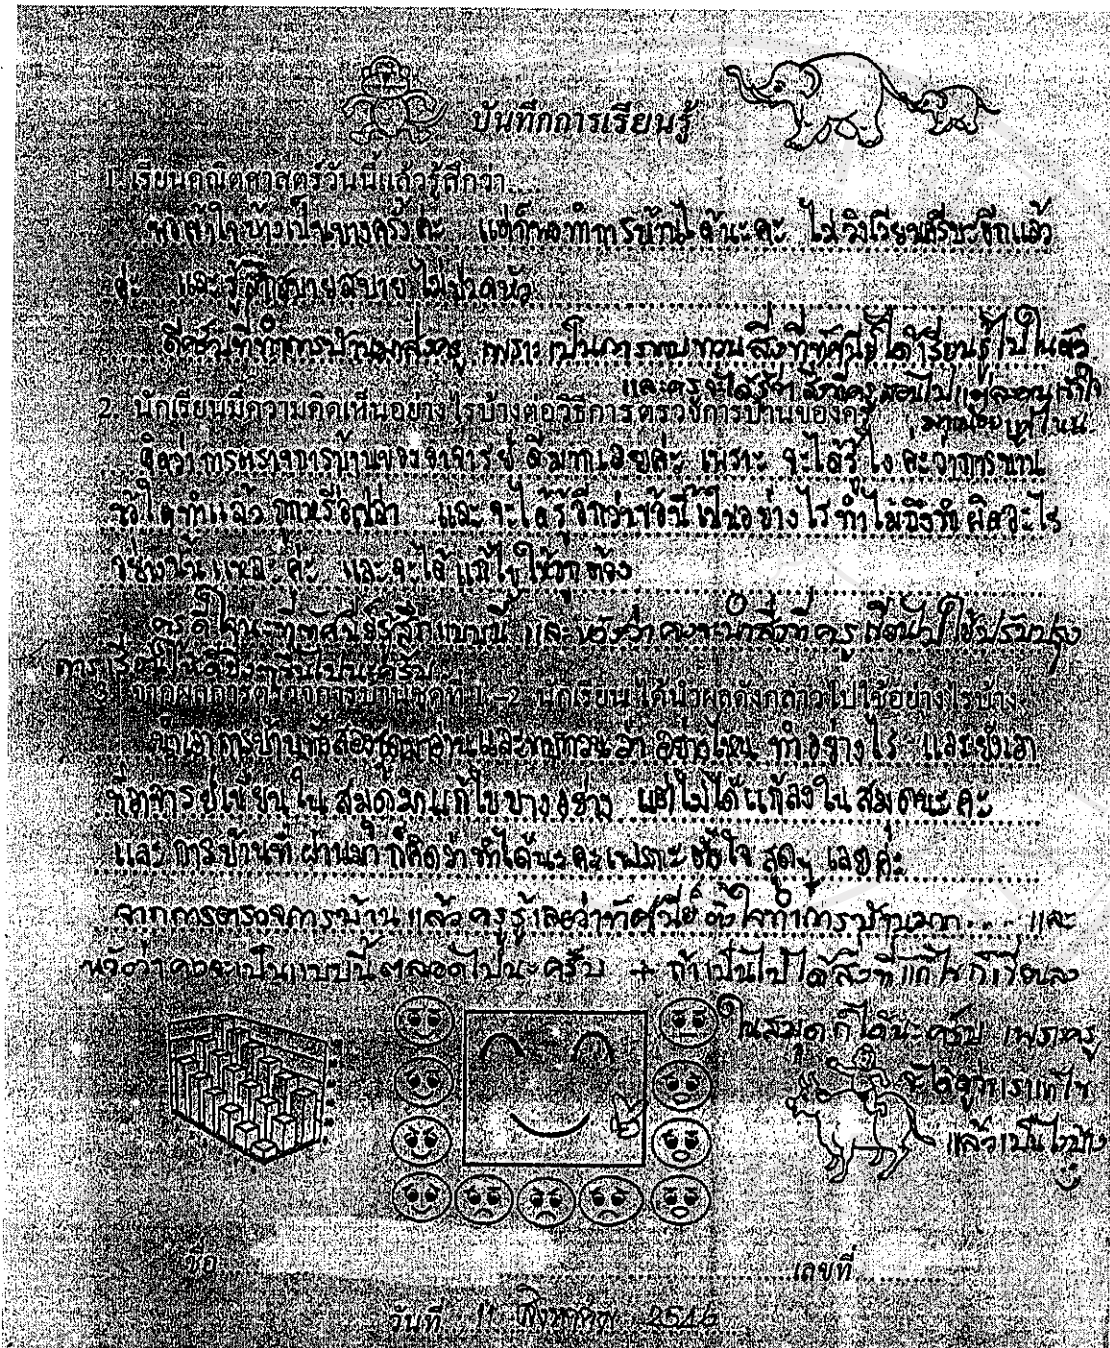 บันทึกการเรียนรู้
1. เรียนคณิตศาสตร์วันนี้แล้วรู้สึกว่า....
พอเข้าใจบ้างเป็นบางครั้งค่ะ แต่ก็พอทำการบ้านได้นะคะ ไม่
ค่ะ และรู้สึกสบายสบายไม่ปวดหัว
ดีครับที่ทำการบ้านมาส่งครู เพราะเป็นการทบทวนสิ่งที่ทัศนีย์ได้เรียนรู้ไปในตัว
และครูจะได้รู้ว่าสิ่งที่ครูสอนไปแต่ละคนเข้าใจ
2. นักเรียนมีความคิดเห็นอย่างไรบ้างต่อวิธีการตรวจการบ้านของครู
มากน้อยแค่ไหน
คิดว่าการตรวจการบ้านของอาจารย์ ดีมากเลยค่ะ เพราะ จะได้รู้ไงคะว่าการบ้าน
ข้อใดทำแล้วถูกหรือเปล่า และจะได้รู้อีกว่าข้อนี้เป็นอย่างไร ทำไมถึงผิดอะไร
อย่างนั้นแหละค่ะ และจะได้แก้ไขให้ถูกต้อง
ครูดีใจนะที่ทัศนีย์รู้สึกแบบนี้ และหวังว่าคงจะนำสิ่งที่ครูไปใช้ปรับปรุง
การเรียนให้ดียิ่งๆขึ้นไปนะครับ
3. จากผลการตรวจการบ้านชุดที่ 1 - 2 นักเรียนได้นำผลดังกล่าวไปใช้อย่างไรบ้าง
นำเอาการบ้านทั้งสองชุดมาอ่านและทบทวนว่า ทำอย่างไร และยังเอา
ที่อาจารย์เขียนในสมุดมาแก้ไขบางอย่าง แต่ไม่ได้แก้ลงในสมุดนะคะ
และการบ้านที่ผ่านมาก็คิดว่าทำได้นะคะเพราะตั้งใจ สุดๆ เลยค่ะ
จากการตรวจการบ้าน แล้วครูรู้เลยว่าทัศนีย์ตั้งใจทำการบ้านมาก... และ
หวังว่าคงจะเป็นแบบนี้ตลอดไปนะครับ + ถ้าเป็นไปได้สิ่งที่แก้ไขก็เขียนลง
ในสมุดก็ได้นะครับ เพราะครู
จะได้ดูการแก้ไข
แล้วเป็นไงบ้าง
ชื่อ เลขที่
วันที่ 11 สิงหาคม 2546